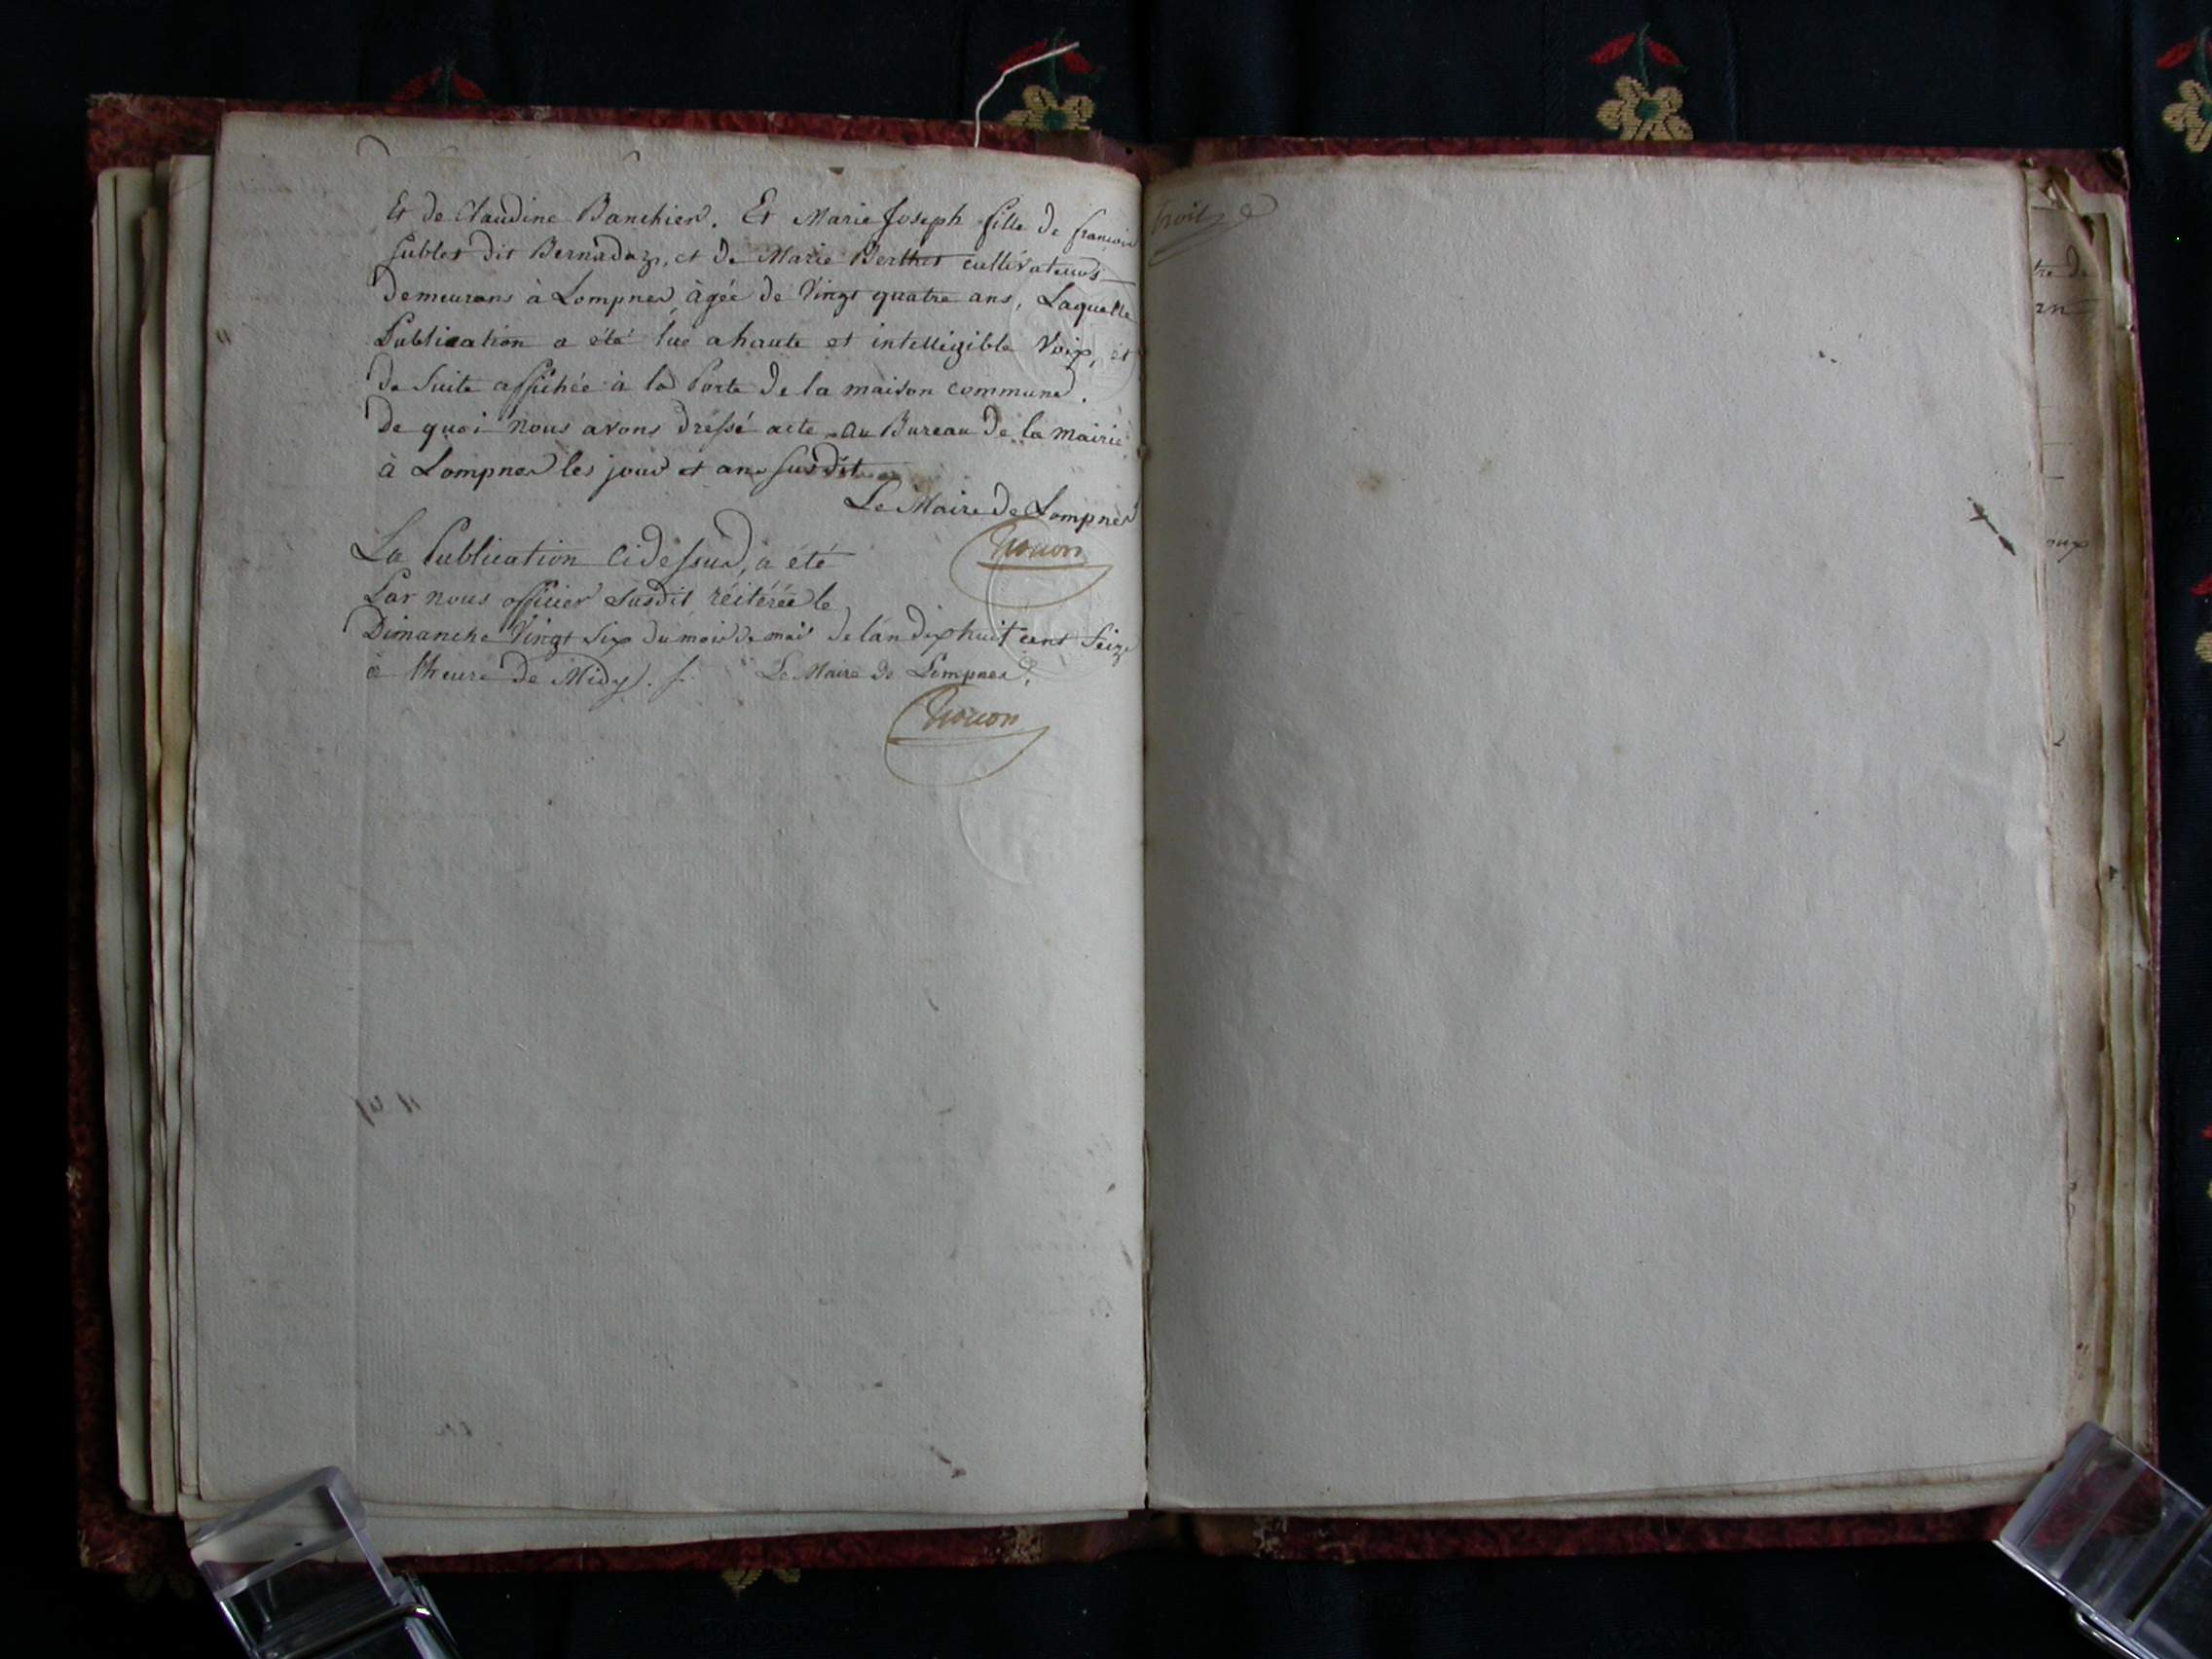 Et de Claudine Banchier. Et Marie Joseph fille de françois
Sublet dit Bernadaz, et de Marie Berthet cultivateurs
demeurans à Lompnes, âgée de Vingt quatre ans, Laquelle
Publication a été lue a haute et intelligible Voix, et
de Suite affichée à la Porte de la maison commune.
De quoi nous avons dressé acte au Bureau de la mairie
à Lompnes les jour et an Susdit
Le Maire de Lompnes
La Publication Cidessus, a été
Par nous officier susdit réitérée le
Dimanche Vingt Six du mois de mai de l'an dix huit cent Seize
à l'heure de Midy. Le Maire de Lompnes,
tre de